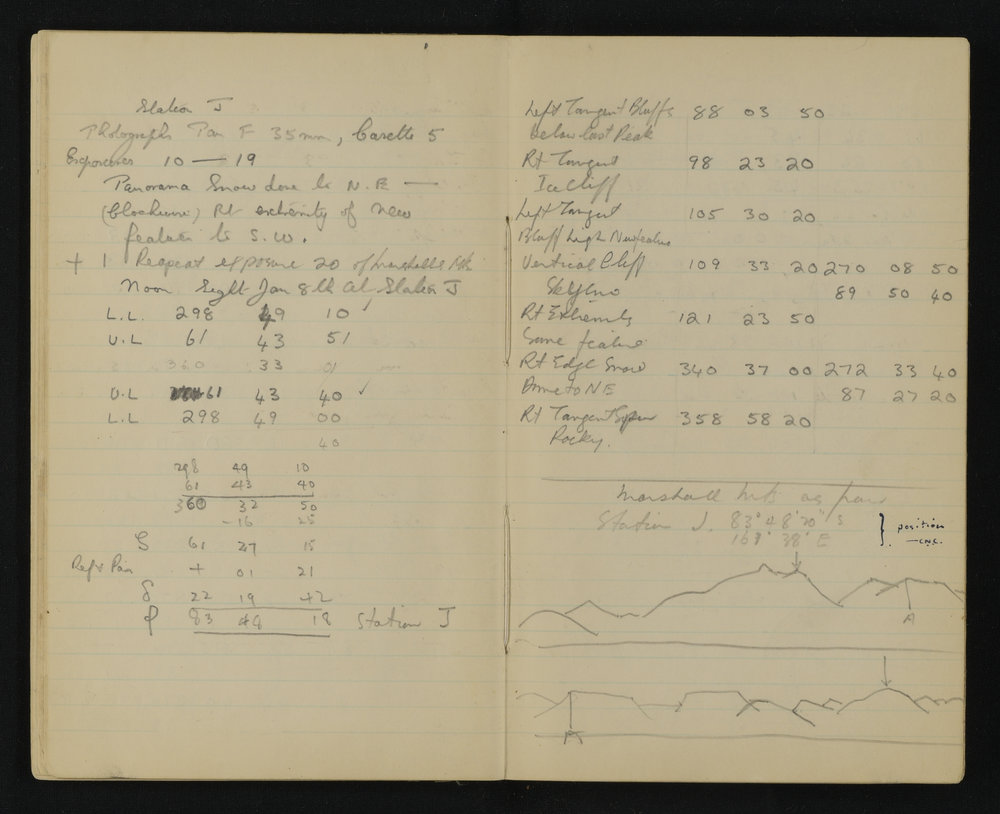 Station J
Photographs Pan F 35mm, Casette 5
Exposures 10 — 19
Panorama Snow dome to N.E —
(Clockwise) Rt extremity of new
feature to S.W.
+ 1 Reapeat exposure 20 of Marshalls
Noon Sight Jan 8th at Station J
L.L. 298 49 10
U.L 61 43 51
360 33 01
U.L 61 43 40
L.L 298 49 00
40
298 49 10
61 43 40
360 32 50
-16 25
61 27 15
Refr Par + 01 21
δ 22 19 42
φ 83 48 18 Station J
Left Tangent Bluffs 88 03 50
below last Peak
Rt Tangent 98 23 20
Ice Cliff
Left Tangent 105 30 20
Bluff High New feature
Vertical Cliff 109 33 20 270 08 50
Skyline 89 50 40
Rt Extremity 121 23 50
Same feature
Rt Edge Snow 340 37 00 272 33 40
Dome to NE 87 27 20
Rt Tangent Spur 358 58 20
Rocky.
Marshall Mts as from
Station J. 83° 48' 20" S } position
161° 38' E —CNC.
A
A